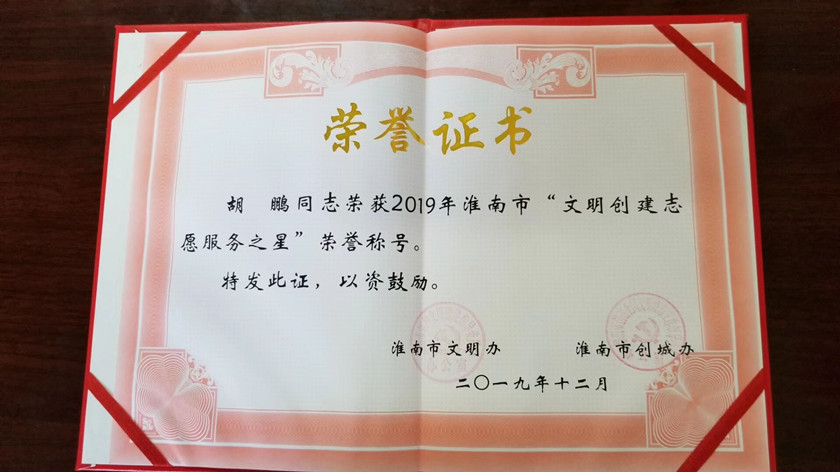 荣誉证书
胡 鹏同志荣获2019年淮南市“文明创建志
愿服务之星”荣誉称号。
特发此证，以资鼓励。
淮南市文明办 淮南市创城办
二〇一九年十二月